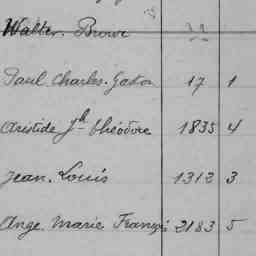 Walter. Prosper
Paul Charles. Gaston 17 1
Aristide Jh théodore 1835 4
Jean. Louis 1312 3
Ange Marie François 2183 5